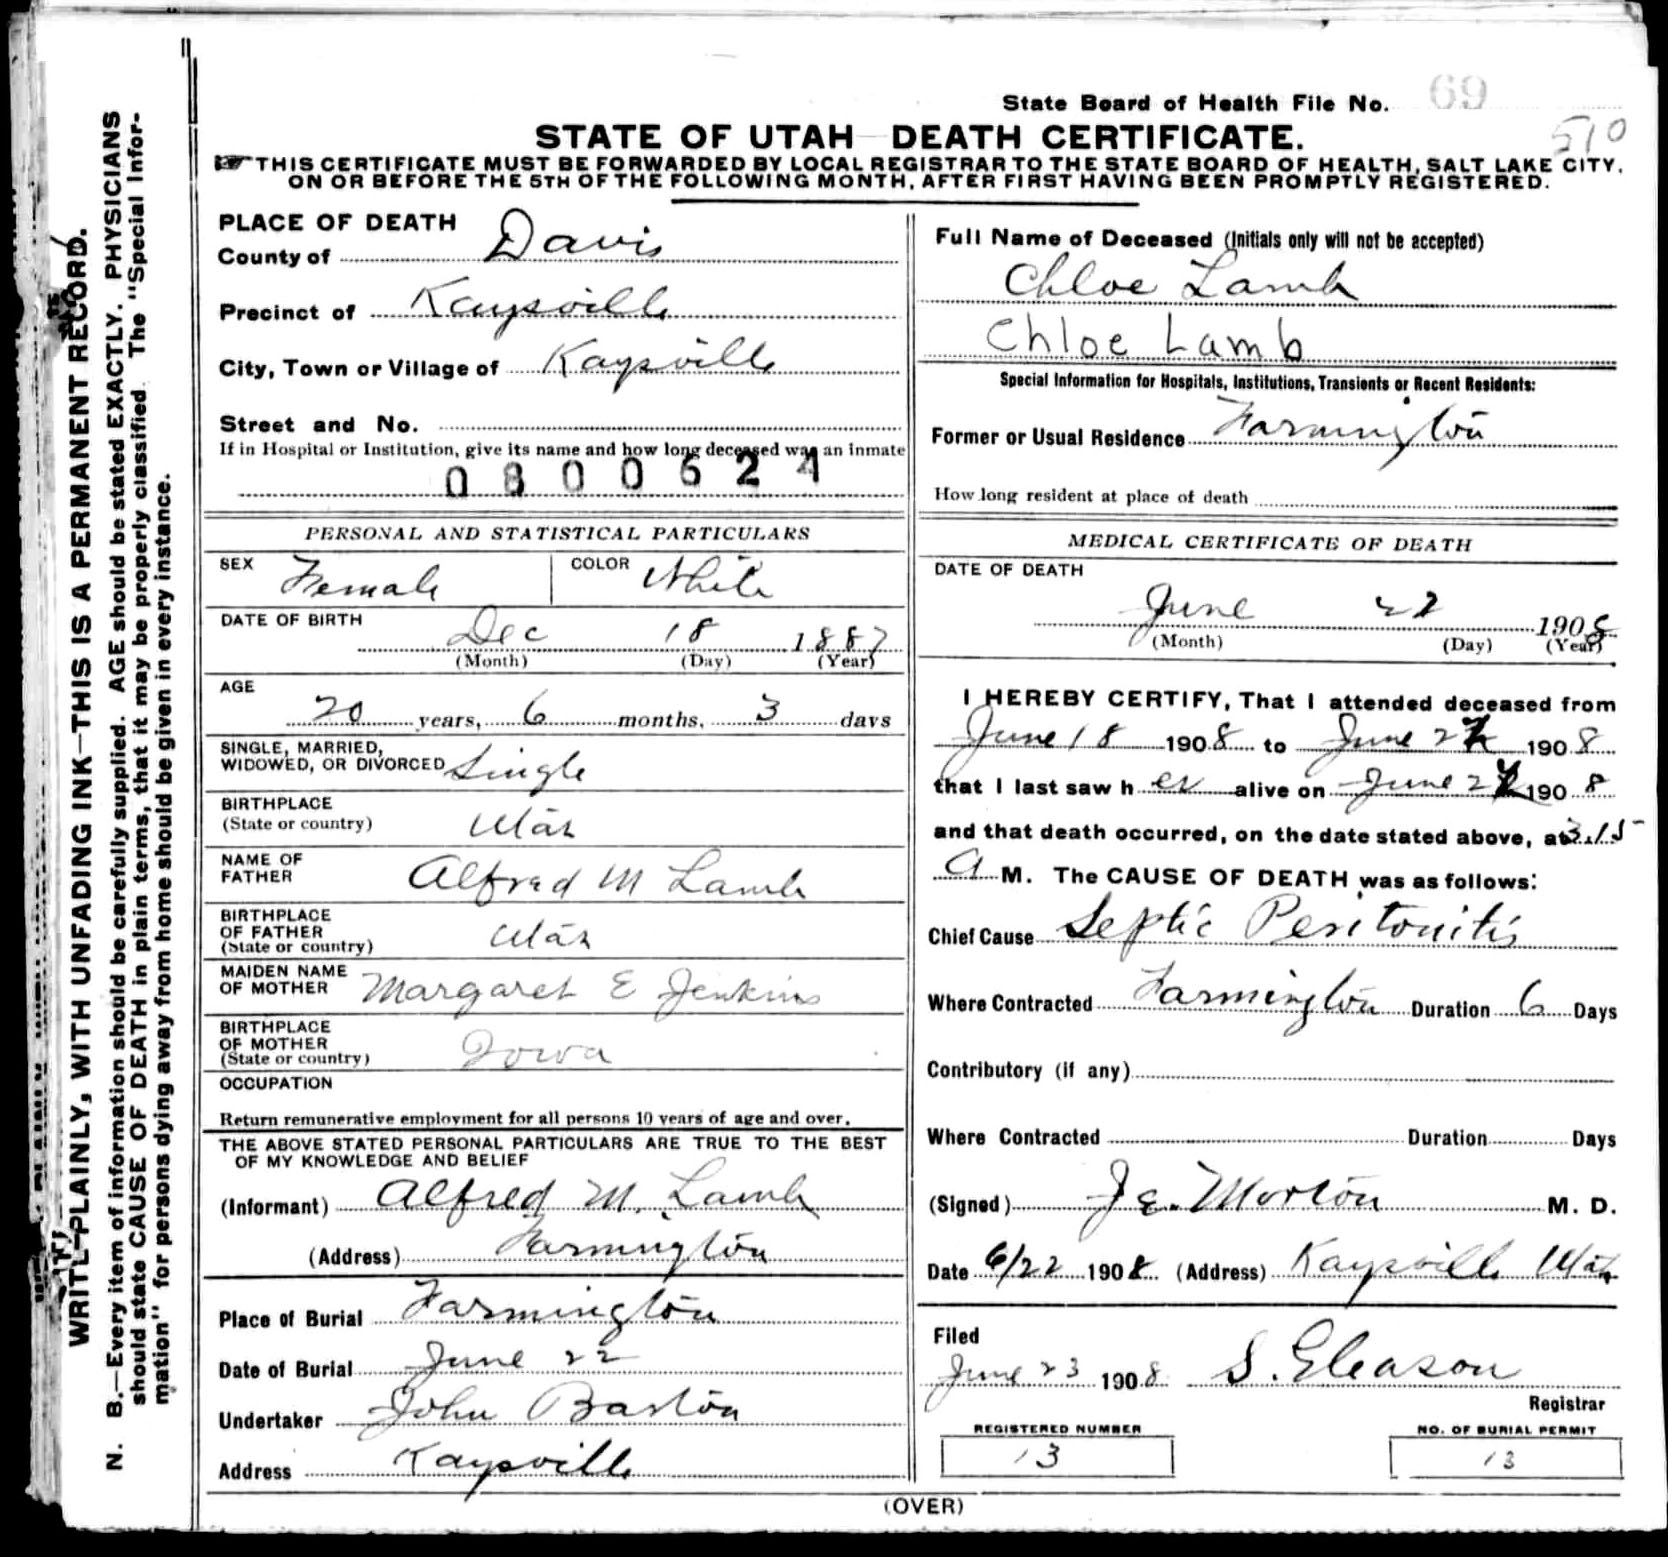 State Board of Health File No. 69
510
STATE OF UTAH—DEATH CERTIFICATE.
THIS CERTIFICATE MUST BE FORWARDED BY LOCAL REGISTRAR TO THE STATE BOARD OF HEALTH, SALT LAKE CITY,
ON OR BEFORE THE 5TH OF THE FOLLOWING MONTH, AFTER FIRST HAVING BEEN PROMPTLY REGISTERED.
WRITE PLAINLY, WITH UNFADING INK—THIS IS A PERMANENT RECORD.
N. B.—Every item of information should be carefully supplied. AGE should be stated EXACTLY. PHYSICIANS
should state CAUSE OF DEATH in plain terms, that it may be properly classified. The "Special Infor-
mation" for persons dying away from home should be given in every instance.
PLACE OF DEATH
County of Davis
Precinct of Kaysville
City, Town or Village of Kaysville
Street and No.
If in Hospital or Institution, give its name and how long deceased was an inmate
0800621
PERSONAL AND STATISTICAL PARTICULARS
SEX Female COLOR White
DATE OF BIRTH
Dec 18 1887
(Month) (Day) (Year)
AGE
20 years, 6 months, 3 days
SINGLE, MARRIED,
WIDOWED, OR DIVORCED Single
BIRTHPLACE
(State or country) Utah
NAME OF
FATHER Alfred M Lamb
BIRTHPLACE
OF FATHER
(State or country) Utah
MAIDEN NAME
OF MOTHER Margaret E Jenkins
BIRTHPLACE
OF MOTHER
(State or country) Iowa
OCCUPATION
Return remunerative employment for all persons 10 years of age and over.
THE ABOVE STATED PERSONAL PARTICULARS ARE TRUE TO THE BEST
OF MY KNOWLEDGE AND BELIEF
(Informant) Alfred M. Lamb
(Address) Farmington
Place of Burial Farmington
Date of Burial June 22
Undertaker John Barton
Address Kaysville
Full Name of Deceased (Initials only will not be accepted)
Chloe Lamb
Chloe Lamb
Special Information for Hospitals, Institutions, Transients or Recent Residents:
Former or Usual Residence Farmington
How long resident at place of death
MEDICAL CERTIFICATE OF DEATH
DATE OF DEATH
June 22 1908
(Month) (Day) (Year)
I HEREBY CERTIFY, That I attended deceased from
June 18 1908 to June 22 1908
that I last saw her alive on June 22 1908
and that death occurred, on the date stated above, at 3.15
A M. The CAUSE OF DEATH was as follows:
Chief Cause Septic Peritonitis
Where Contracted Farmington Duration 6 Days
Contributory (if any)
Where Contracted Duration Days
(Signed) J E. Morton M. D.
Date 6/22 1908 (Address) Kaysville Utah
Filed
June 23 1908 S. Gleason
Registrar
REGISTERED NUMBER
13
NO. OF BURIAL PERMIT
13
(OVER)